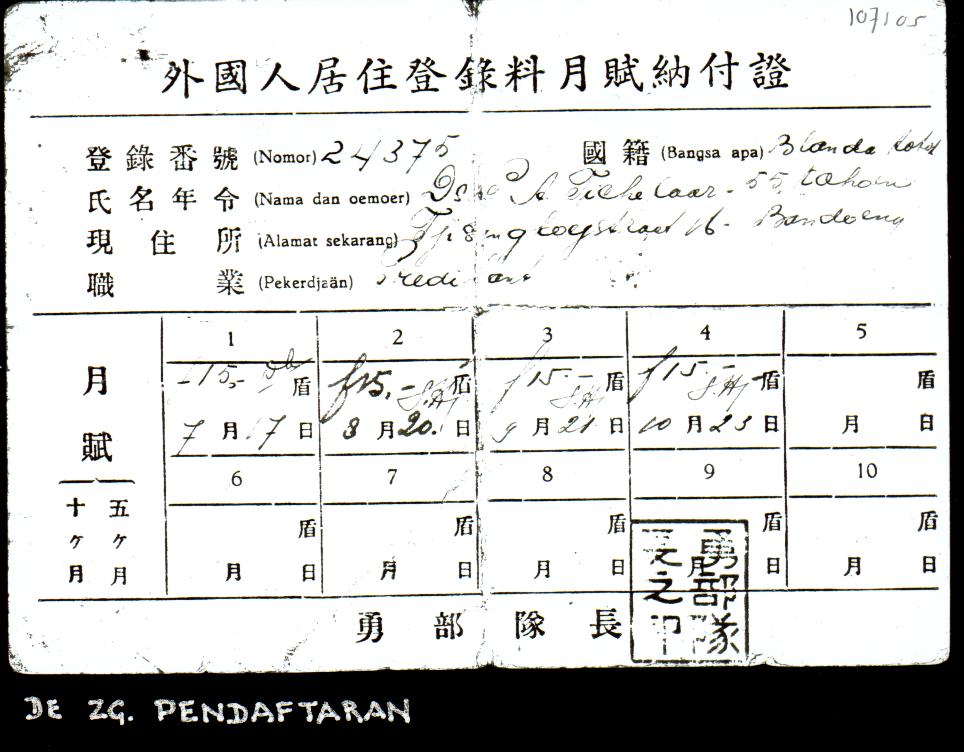 107105
外國人居住登錄料月賦納付證
登錄番號 (Nomor) 24375 國籍 (Bangsa apa) Blanda totok
氏名年令 (Nama dan oemoer) A. 55 tahoen
現住所 (Alamat sekarang) 16. Bandoeng
職業 (Pekerdjaän) Predikant
月賦
十ヶ月 五ヶ月
1 2 3 4 5
15.- 盾 f15.- 盾 f15.- 盾 f15.- 盾 盾
7月17日 8月20.日 9月21日 10月23日 月 日
6 7 8 9 10
盾 盾 盾 盾 盾
月 日 月 日 月 日 月 日 月 日
勇部隊長
勇部隊
之印
DE ZG. PENDAFTARAN